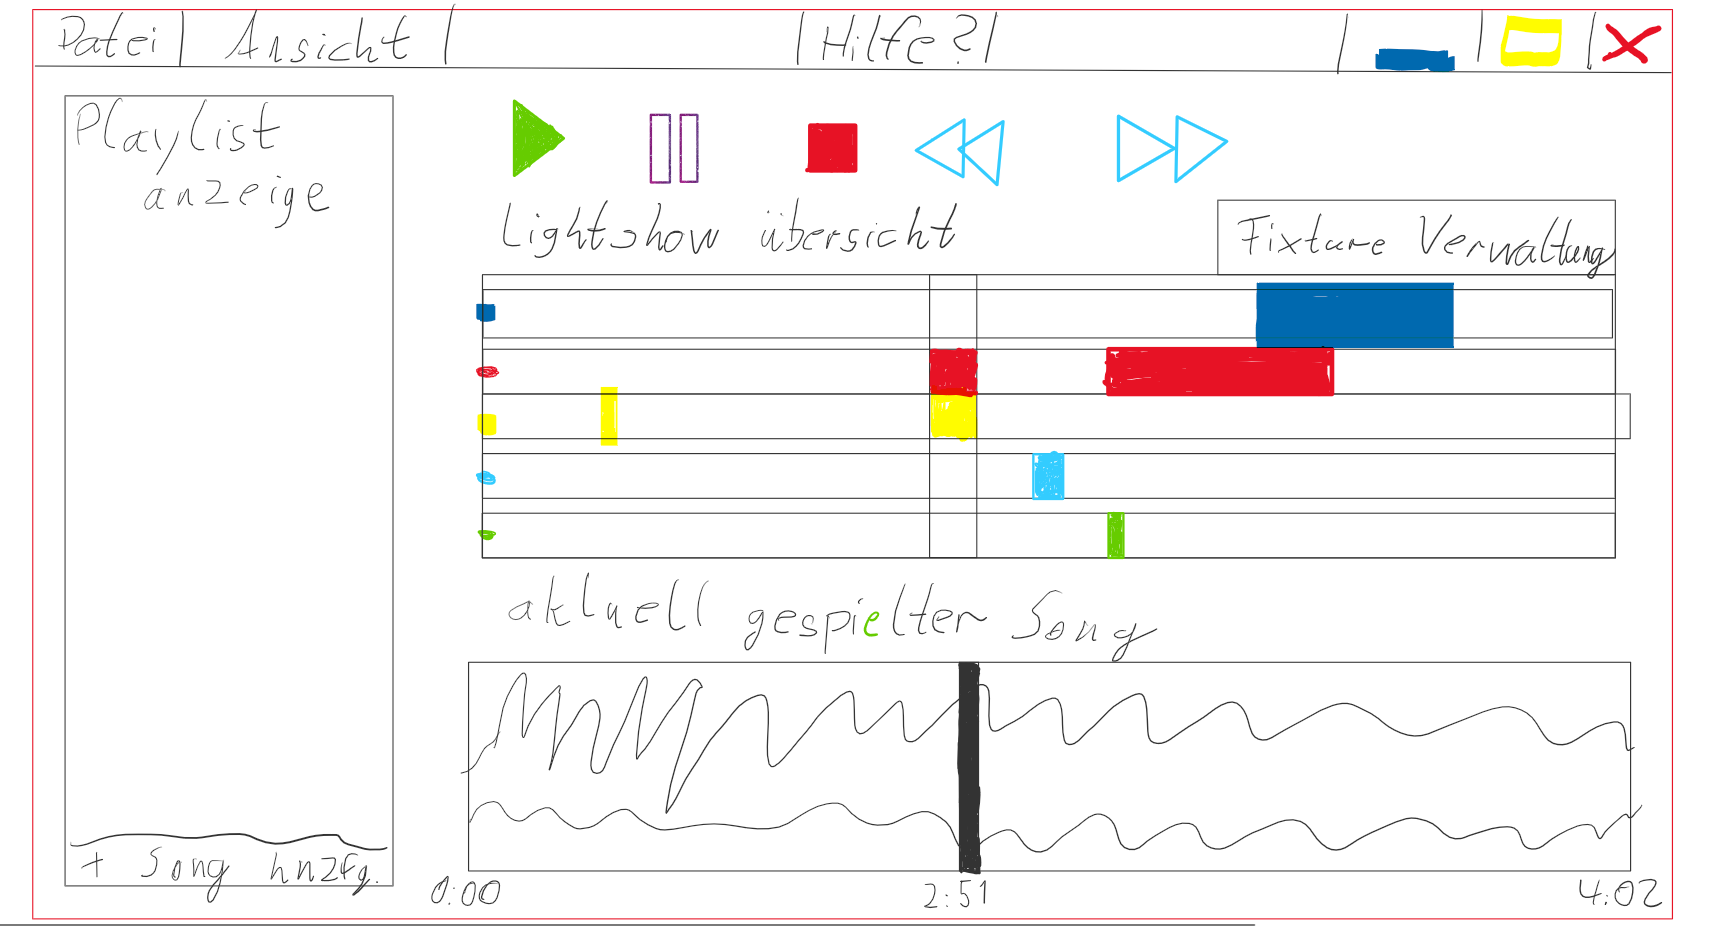 Datei | Ansicht | | Hilfe? |
Playlist
anzeige
Lightshow übersicht
Fixture Verwaltung
aktuell gespielter Song
+ Song hnzfg.
0:00 2:51 4:02